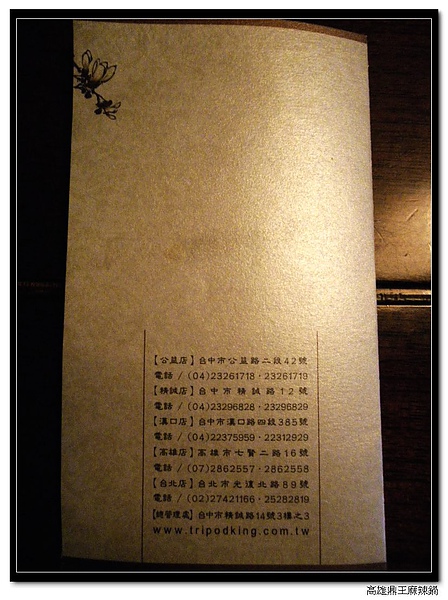 【公益店】台中市公益路二段42號
電話 / (04)23261718·23261719
【精誠店】台中市精誠路12號
電話 / (04)23296828·23296829
【漢口店】台中市漢口路四段385號
電話 / (04)22375959·22312929
【高雄店】高雄市七賢二路16號
電話 / (07)2862557·2862558
【台北店】台北市光復北路89號
電話 / (02)27421166·25282819
【總管理處】台中市精誠路14號3樓之3
www.tripodking.com.tw
高雄鼎王麻辣鍋